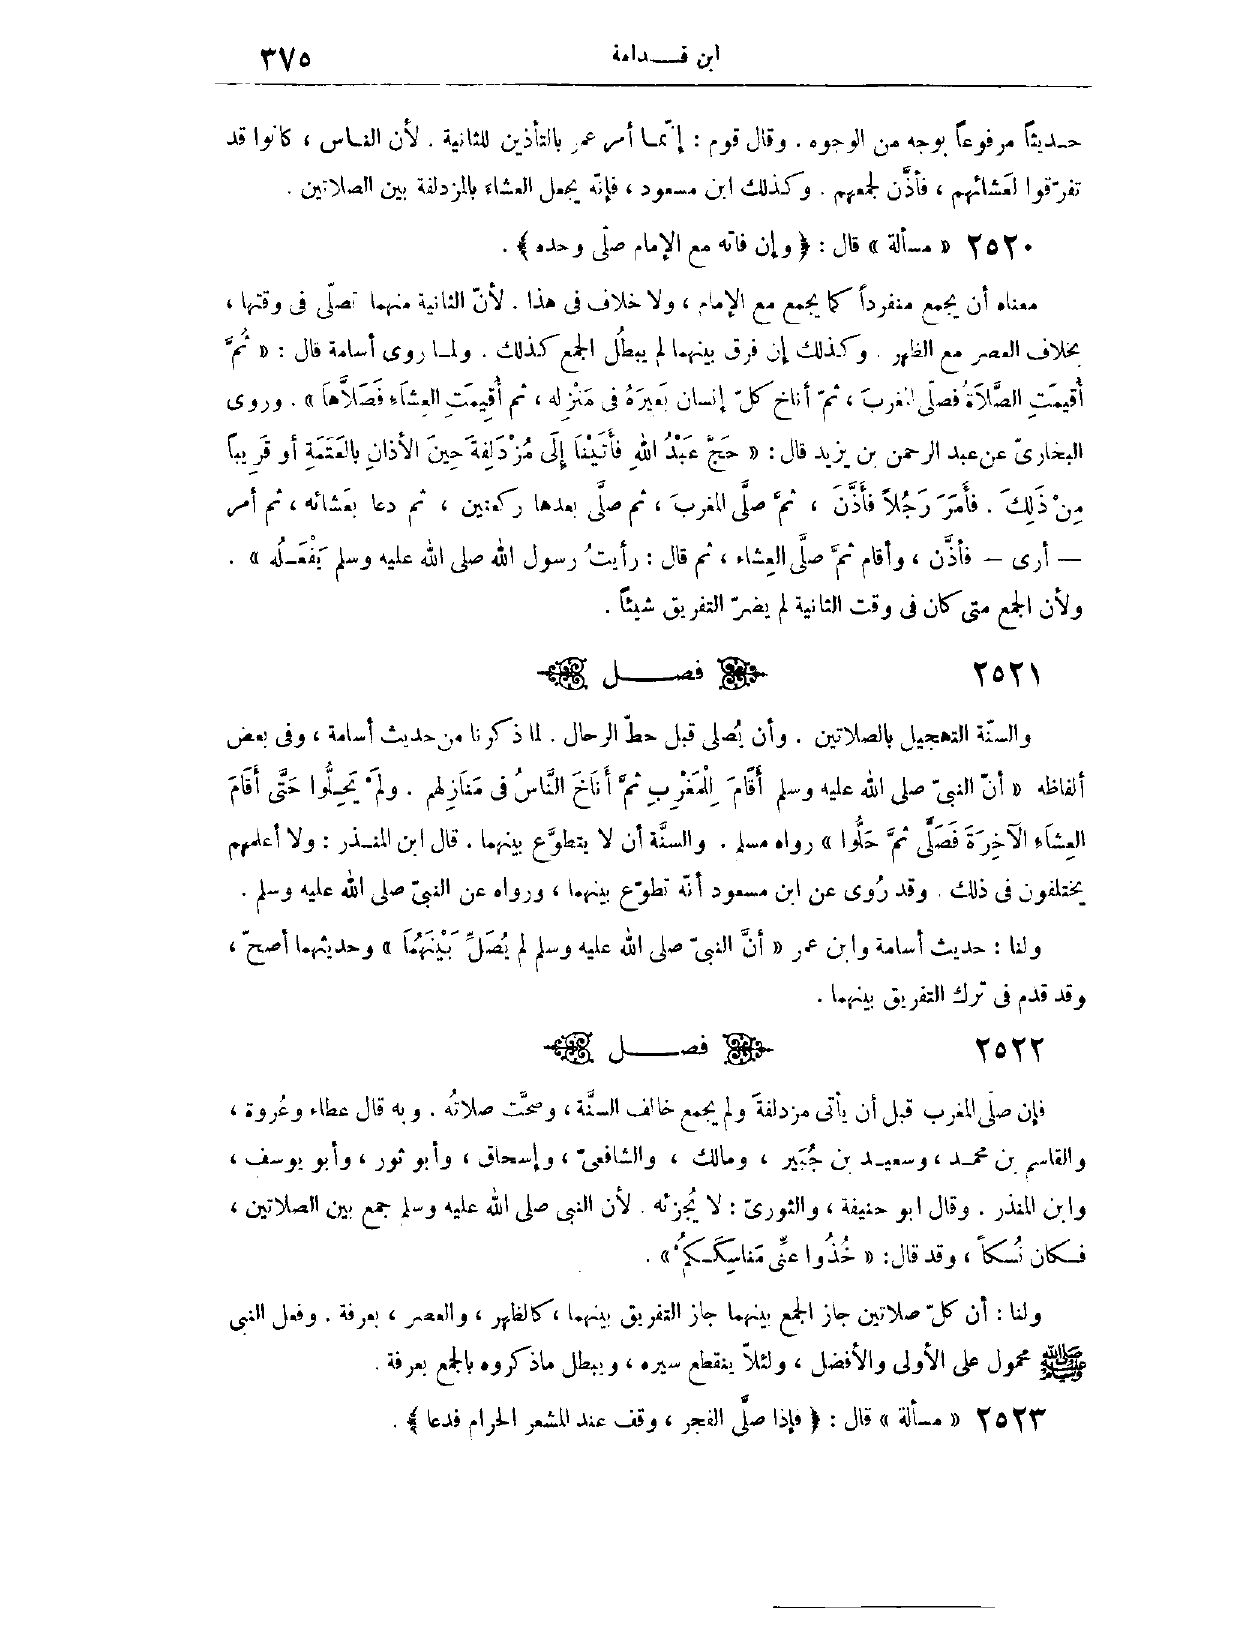 ابن قــدامة ٣٧٥
حــديثاً مرفوعاً بوجه من الوجوه . وقال قوم : إنّمـا أمر عمر بالتأذين للثانية . لأن النـاس ، كانوا قد
تفرّقوا لعَشائهم ، فأذَّن لجمعهم . وكذلك ابن مسعود ، فإنّه يجعل العشاء بالمزدلفة بين الصلاتين .
٢٥٢٠ « مسألة » قال : ﴿ وإن فاته مع الإمام صلّى وحده ﴾ .
معناه أن يجمع منفرداً كما يجمع مع الإمام ، ولا خلاف فى هذا . لأنّ الثانية منهما تصلّى فى وقتها ،
بخلاف العصر مع الظهر . وكذلك إن فرق بينهما لم يبطُل الجمع كذلك . ولمـا روى أسامة قال : « ثُمَّ
أُقيمَتِ الصَّلاَةُ فصلّى المغربَ ، ثمّ أناخ كلّ إنسان بَعيرَهُ فى مَنْزِله ، ثم أُقِيمَتِ العِشَاءِ فَصَلاَّهَا » . وروى
البخارىّ عن عبد الرحمن بن يزيد قال : « حَجَّ عَبْدُ اللهِ فأَتَيْنَا إِلَى مُزْدَلِفَةَ حِينَ الأذانِ بالعَتَمَةِ أو قَرِيباً
مِنْ ذَلِكَ . فأَمَرَ رَجُلاً فأَذَّنَ ، ثمَّ صلَّى المغربَ ، ثم صلَّى بعدها ركعتين ، ثم دعا بعَشائه ، ثم أمر
— أرى — فأذَّن ، وأقام ثمَّ صلَّى العِشاء ، ثم قال : رأيتُ رسول الله صلى الله عليه وسلم يَفْعَــلُه » .
ولأن الجمع متى كان فى وقت الثانية لم يضرّ التفريق شيئاً .
٢٥٢١ فصــــل
والسنّة التعجيل بالصلاتين . وأن يُصلى قبل حطّ الرحال . لما ذكرنا من حديث أسامة ، وفى بعض
ألفاظه « أنّ النبىّ صلى الله عليه وسلم أَقَامَ لِلْمَغْرِبِ ثمَّ أَنَاخَ النَّاسُ فى مَنَازِلهم . ولَمْ يَحِلُّوا حَتَّى أَقَامَ
العِشَاءِ الآخِرَةَ فَصَلَّى ثمَّ حَلُّوا » رواه مسلم . والسنَّة أن لا يتطوَّع بينهما . قال ابن المنــذر : ولا أعلمهم
يختلفون فى ذلك . وقد رُوى عن ابن مسعود أنّه تطوّع بينهما ، ورواه عن النبىّ صلى الله عليه وسلم .
ولنا : حديث أسامة وابن عمر « أنَّ النبىّ صلى الله عليه وسلم لم يُصَلِّ بَيْنَهُمَا » وحديثهما أصحّ ،
وقد قدم فى ترك التفريق بينهما .
٢٥٢٢ فصــــل
فإن صلّى المغرب قبل أن يأتى مزدلفةَ ولم يجمع خالف السنَّة ، وصحَّت صلاتُه . وبه قال عطاء وعُروة ،
والقاسم بن محمــد ، وسعيــد بن جُبَير ، ومالك ، والشافعىّ ، وإسحاق ، وأبو ثور ، وأبو يوسف ،
وابن المنذر . وقال ابو حنيفة ، والثورىّ : لا يُجزئه . لأن النبى صلى الله عليه وسلم جمع بين الصلاتين ،
فــكان نُسكاً ، وقد قال : « خُذُوا عنِّى مَناسِكَــكمُ » .
ولنا : أن كلّ صلاتين جاز الجمع بينهما جاز التفريق بينهما ، كالظهر ، والعصر ، بعرفة . وفعل النبى
ﷺ محمول على الأولى والأفضل ، ولئلاّ ينقطع سيره ، ويبطل ماذكروه بالجمع بعرفة .
٢٥٢٣ « مسألة » قال : ﴿ فإذا صلَّى الفجر ، وقف عند المشعر الحرام فدعا ﴾ .